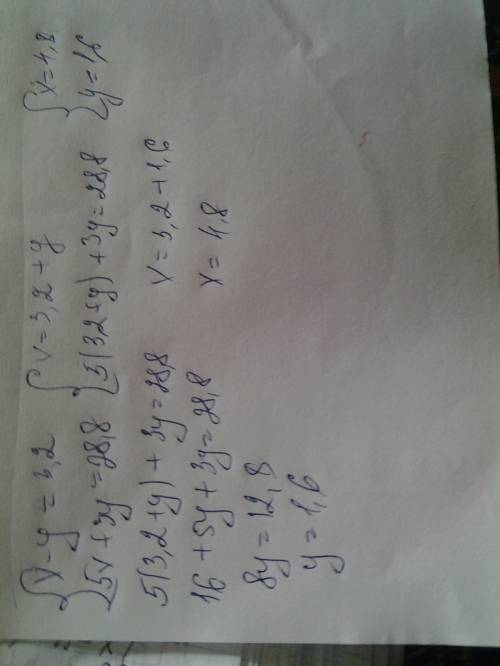 {x-y=3,2 {x=3,2+y {x=4,8
{5x+3y=28,8 {5(3,2+y)+3y=28,8 {y=1,6
5(3,2+y)+3y=28,8 x=3,2+1,6
16+5y+3y=28,8 x=4,8
8y=12,8
y=1,6